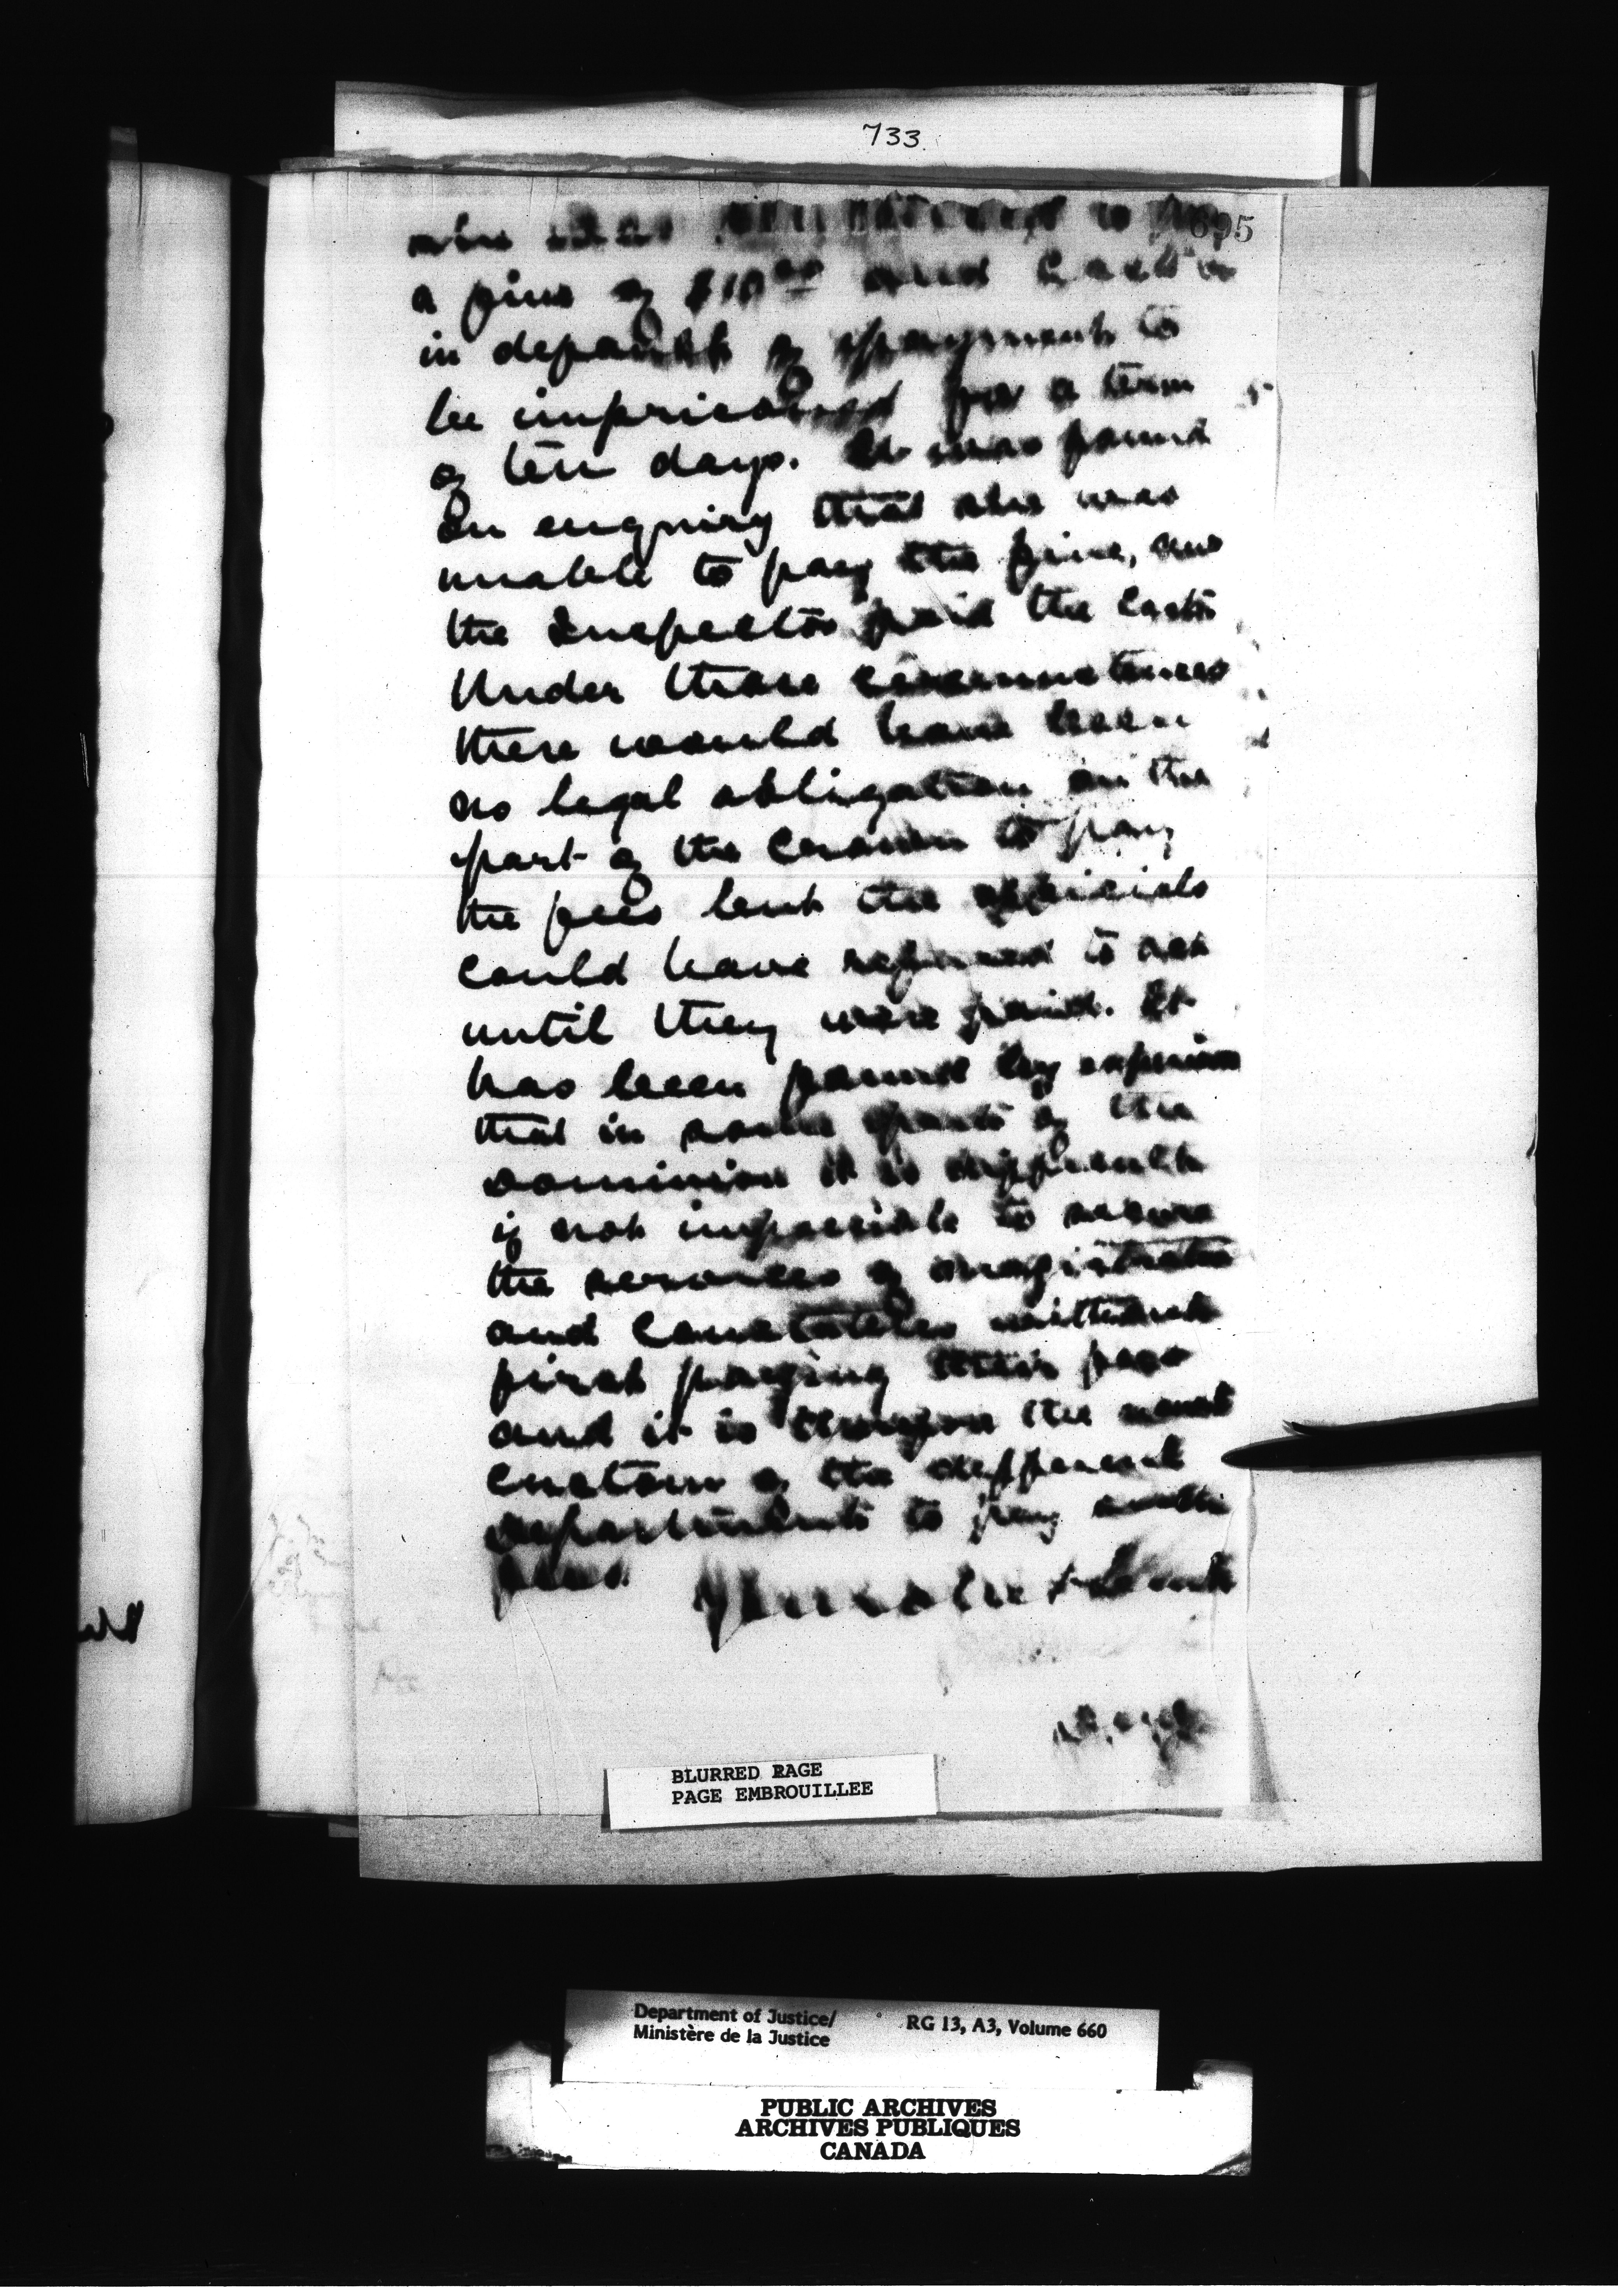 733
695
she was sentenced to pay
a fine of $10.00 and Costs &
in default of payment to
be imprisoned for a term
of ten days. It was found
on enquiry that she was
unable to pay the fine, and
the Inspector paid the Costs
Under those circumstances
there would have been
no legal obligation on the
part of the Crown to pay
the fees but the officials
could have refused to act
until they were paid. It
has been found by
that in some parts of the
dominion it is difficult
if not impossible to secure
the services of magistrates
and Constables without
first paying their fees
and it is the usual
custom of the different
departments to pay such
fees.
BLURRED PAGE
PAGE EMBROUILLEE
Department of Justice/
Ministère de la Justice
RG 13, A3, Volume 660
PUBLIC ARCHIVES
ARCHIVES PUBLIQUES
CANADA